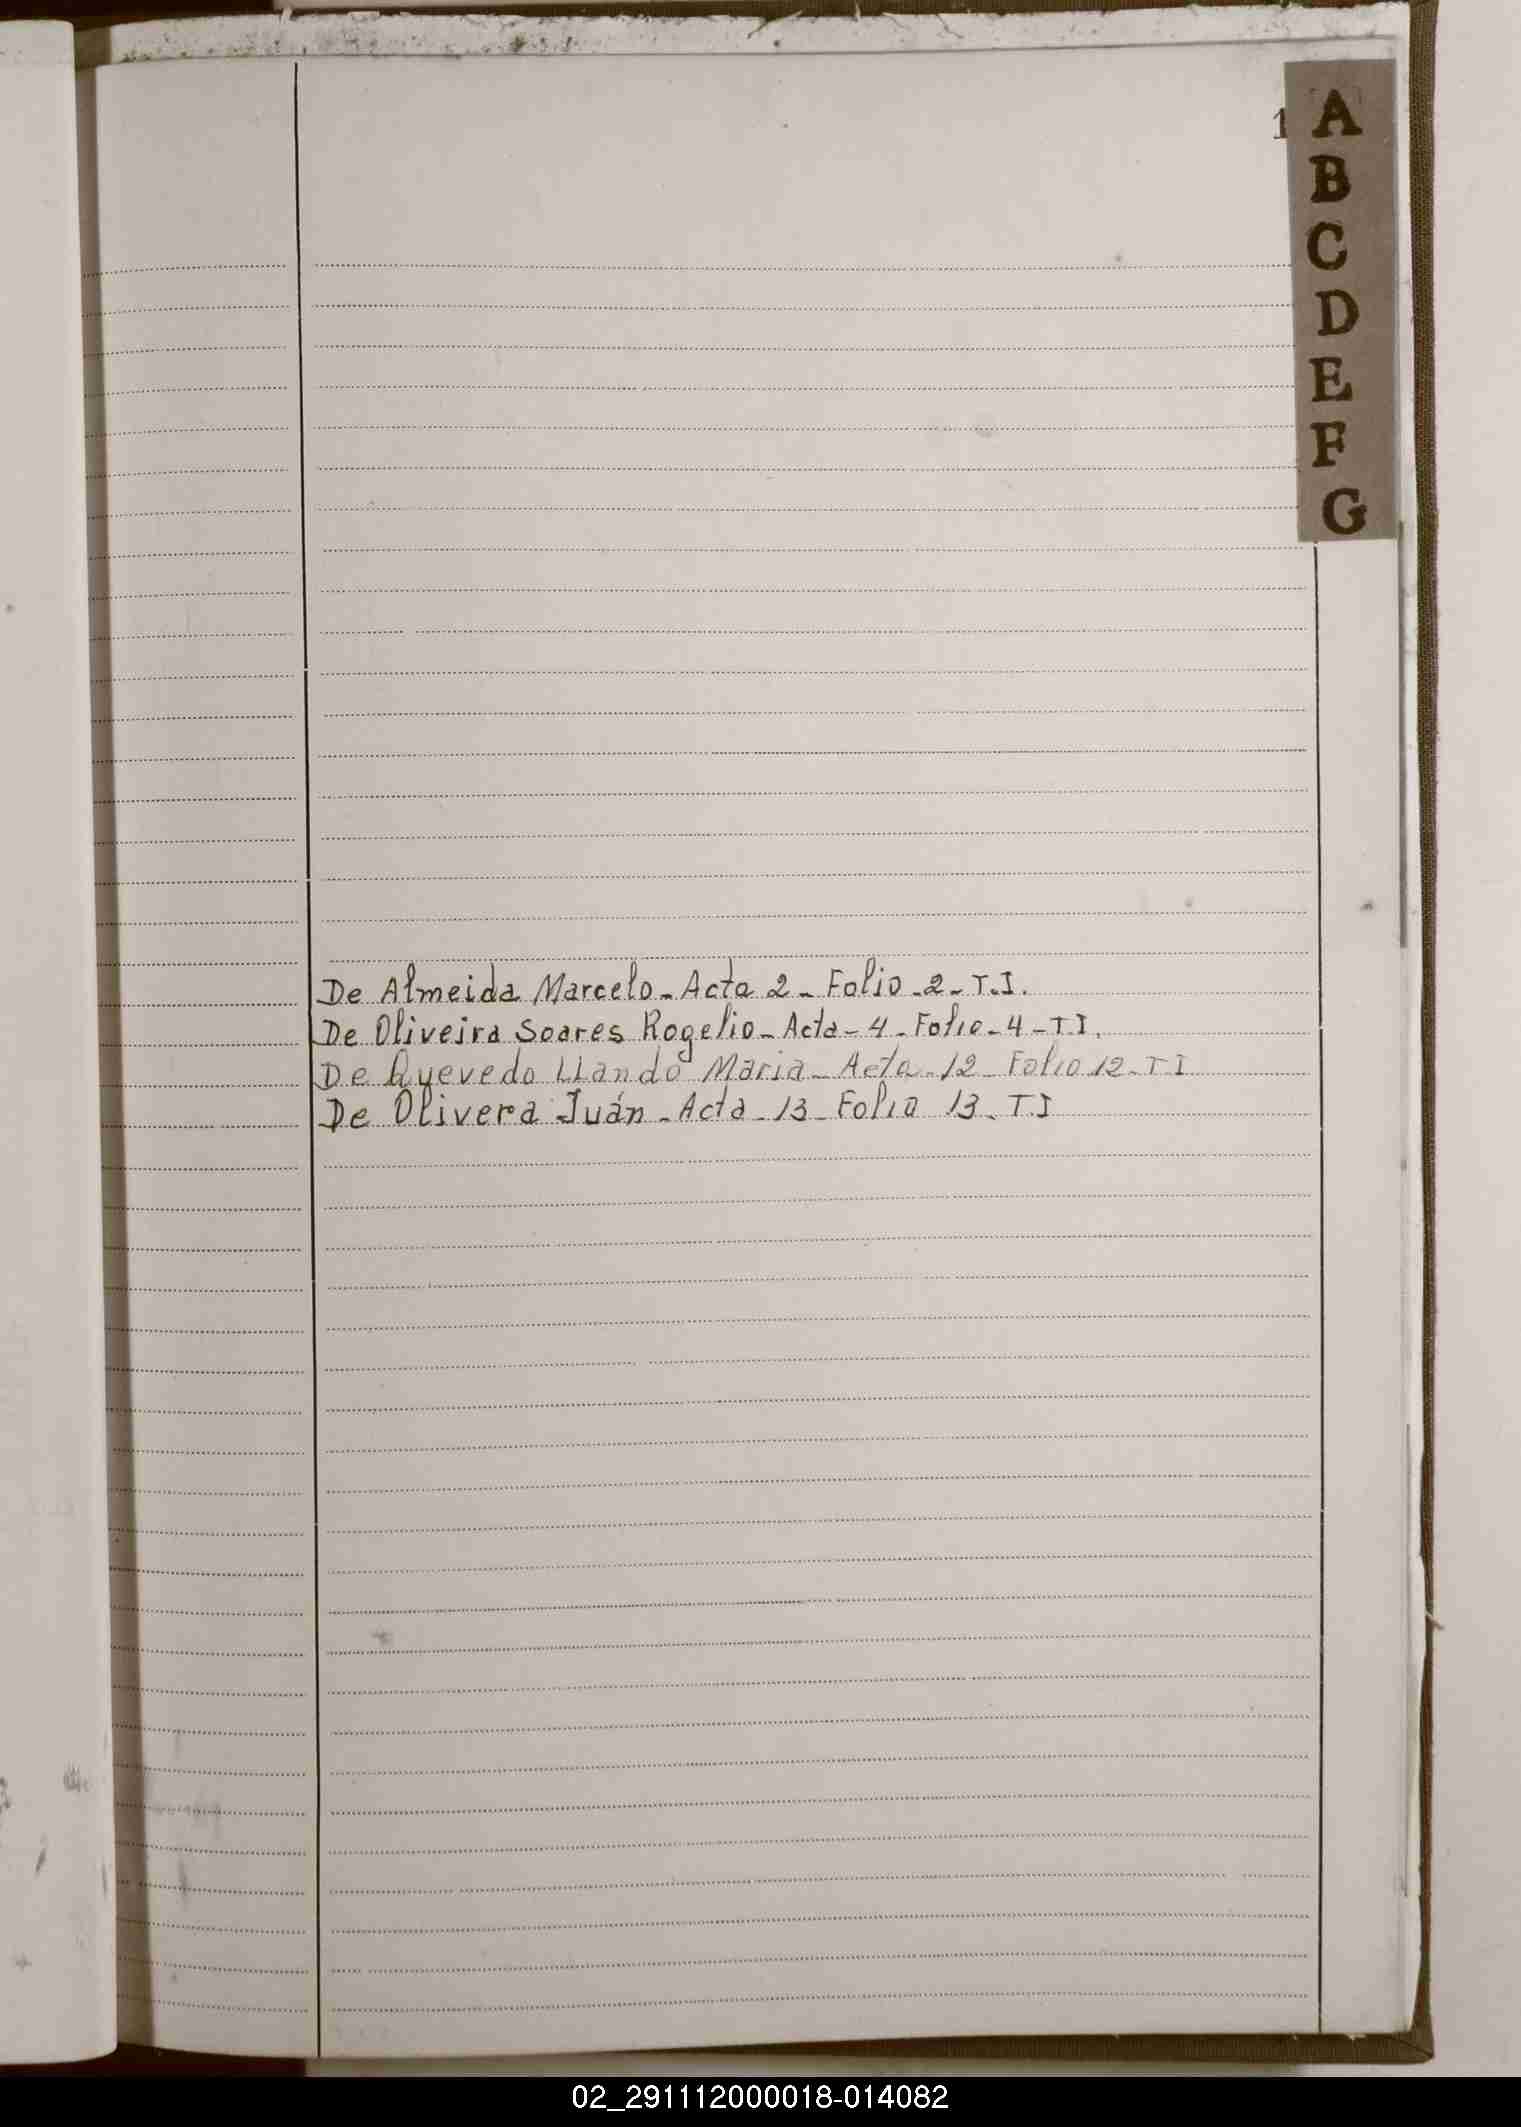 1
A
B
C
D
E
F
G
De Almeida Marcelo - Acta 2 - Folio - 2 - T.I.
De Oliveira Soares Rogelio - Acta - 4 - Folio - 4 - T.I.
De Quevedo Llando Maria - Acta - 12 - Folio 12 - T I
De Olivera Juán - Acta - 13 - Folio 13 - T.I
02_291112000018-014082